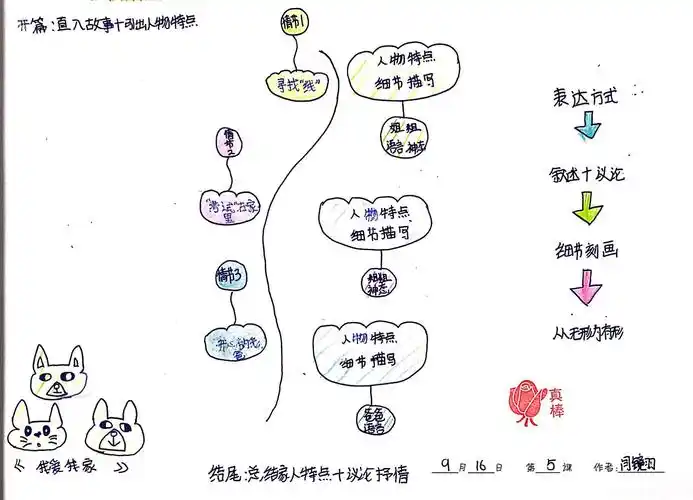 开篇:直入故事+引出人物特点
情节1
寻找"线"
人物特点
细节描写
姐姐
语言神态
情节2
"考试"在家
里
人物特点
细节描写
姐姐
神态
情节3
人物特点
细节描写
爸爸
语言
表达方式
叙述+议论
细节刻画
从无形内有形
真棒
《我爱我家》
结尾:总结家人特点+议论抒情
9月16日 第5课 作者:闫镜羽